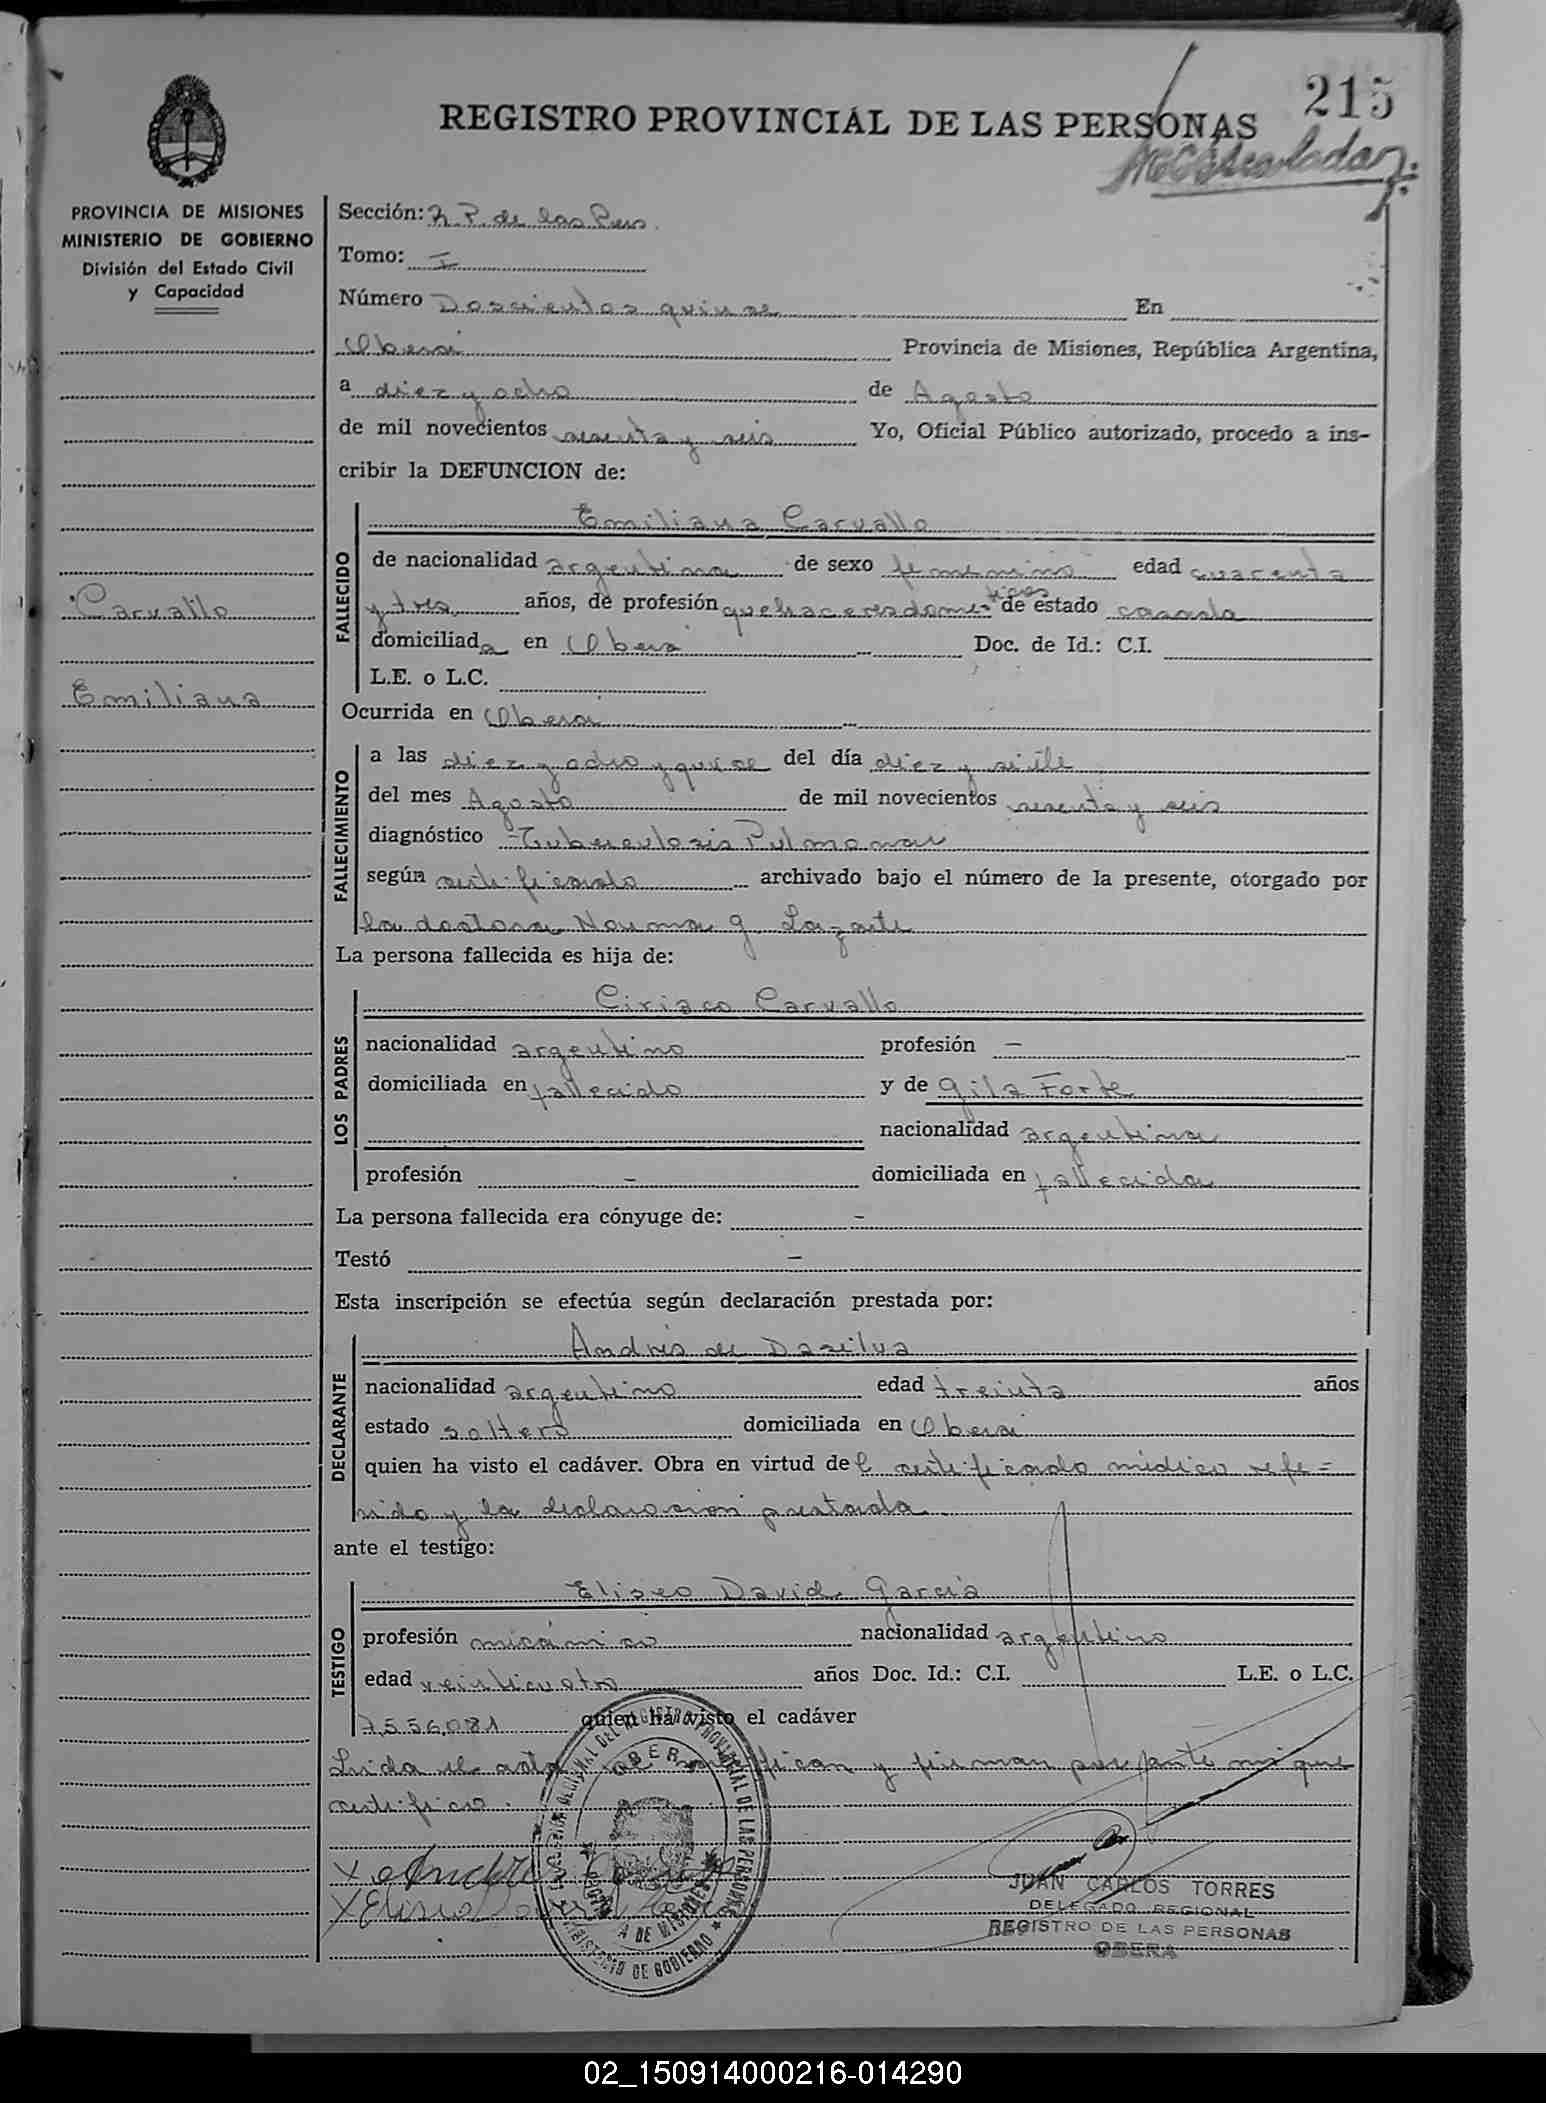 215
REGISTRO PROVINCIAL DE LAS PERSONAS
PROVINCIA DE MISIONES
MINISTERIO DE GOBIERNO
División del Estado Civil
y Capacidad
Carvallo
Emiliana
Sección: R. P. de las Pers.
Tomo: I
Número Doscientos quince En
Oberá Provincia de Misiones, República Argentina,
a diez y ocho de Agosto
de mil novecientos sesenta y seis Yo, Oficial Público autorizado, procedo a ins-
cribir la DEFUNCION de:
FALLECIDO
Emiliana Carvallo
de nacionalidad argentina de sexo femenino edad cuarenta
y tres años, de profesión quehaceres domesticos de estado casada
domiciliada en Oberá Doc. de Id.: C.I.
L.E. o L.C.
Ocurrida en Oberá
FALLECIMIENTO
a las diez y ocho y quince del día diez y siete
del mes Agosto de mil novecientos sesenta y seis
diagnóstico Tuberculosis Pulmonar
según certificado archivado bajo el número de la presente, otorgado por
la doctora Norma G. Lazarte
La persona fallecida es hija de:
LOS PADRES
Ciriaco Carvallo
nacionalidad argentino profesión —
domiciliada en fallecido y de Gila Forte
nacionalidad argentina
profesión — domiciliada en fallecida
La persona fallecida era cónyuge de: —
Testó —
Esta inscripción se efectúa según declaración prestada por:
DECLARANTE
Andrés de Dasilva
nacionalidad argentino edad treinta años
estado soltero domiciliada en Oberá
quien ha visto el cadáver. Obra en virtud del certificado médico refe=
rido y la declaración prestada
ante el testigo:
TESTIGO
Eliseo David García
profesión mecánico nacionalidad argentino
edad veinticuatro años Doc. Id.: C.I. L.E. o L.C.
7.556.081 quien ha visto el cadáver
Leida el acta fican y firman por ante mi que
certifico.
OBERA
MINISTERIO DE GOBIERNO
JUAN CARLOS TORRES
DELEGADO REGIONAL
REGISTRO DE LAS PERSONAS
OBERA
02_150914000216-014290